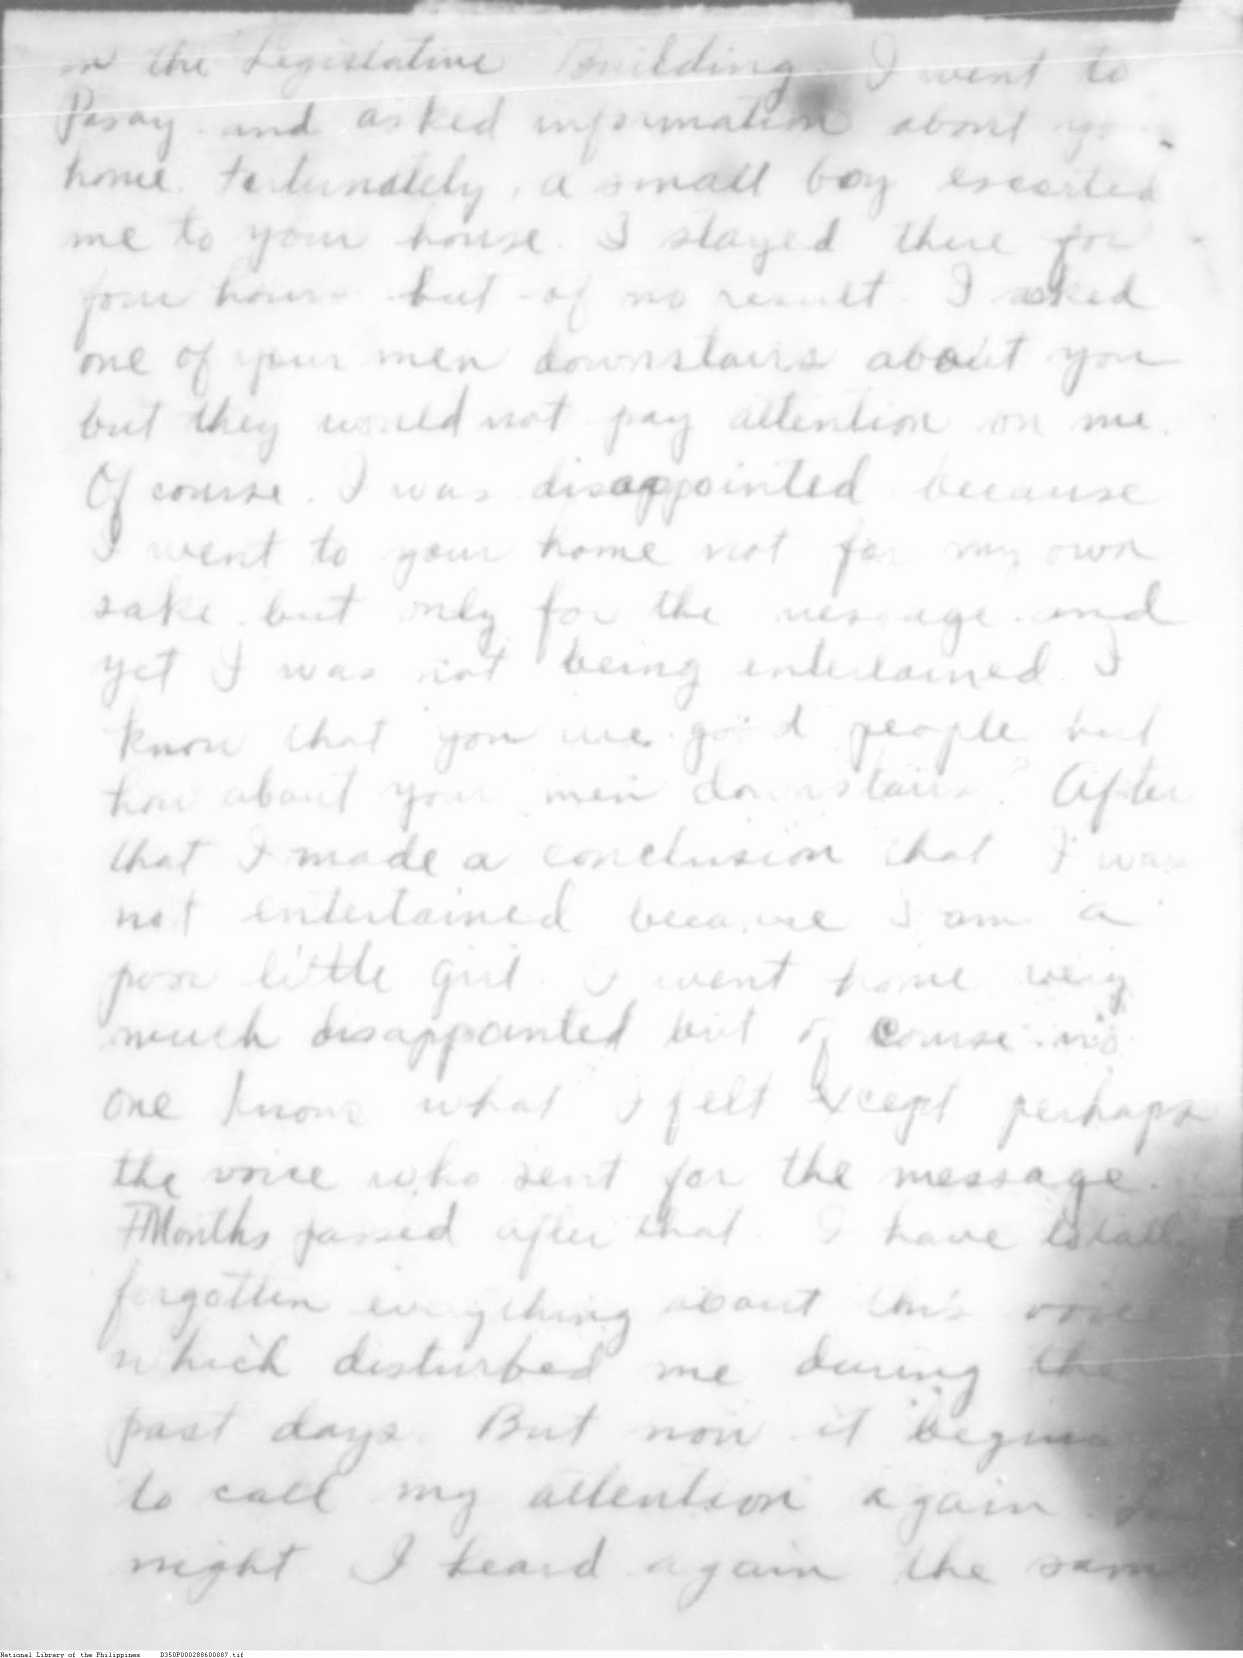 in the Legislative Building. I went to
Pasay and asked information about your
home. Fortunately, a small boy escorted
me to your house. I stayed there for
four hours but of no result. I asked
one of your men downstairs about you
but they would not pay attention on me.
Of course. I was disappointed because
I went to your home not for my own
sake but only for the message and
yet I was not being entertained. I
know that you are good people but
how about your men downstairs? After
that I made a conclusion that I was
not entertained because I am a
poor little girl. I went home very
much disappointed but of course no
one knows what I felt except perhaps
the voice who sent for the message.
7 Months passed after that. I have totally
forgotten everything about this voice
which disturbed me during the
past days. But now it begins
to call my attention again.
night I heard again the same
National Library of the Philippines D350P000288600087.tif